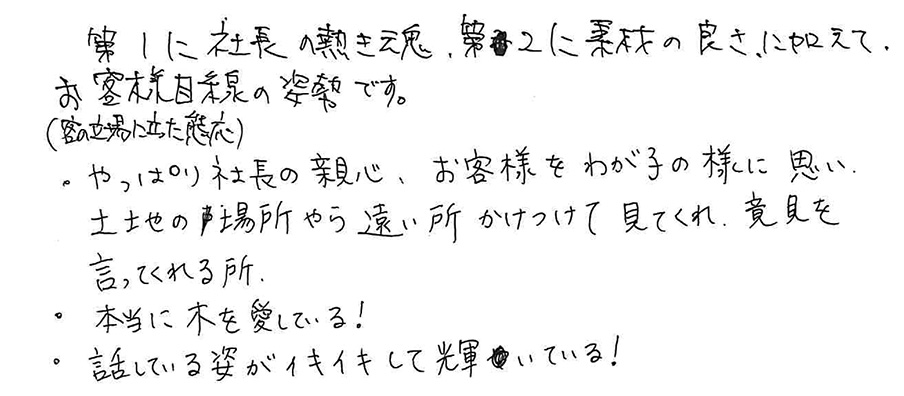 第1に社長の熱き魂、第2に素材の良さ、に加えて、
お客様目線の姿勢です。
(客の立場に立った態応)
・やっぱり社長の親心、お客様をわが子の様に思い、
土地の場所やら遠い所かけつけて見てくれ、意見を
言ってくれる所。
・本当に木を愛している!
・話している姿がイキイキして輝いている!